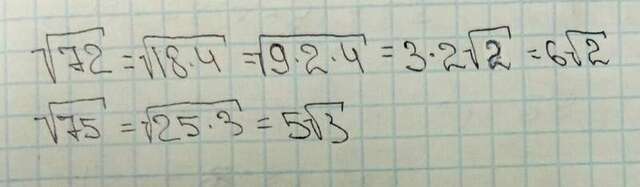 √72 = √18·4 = √9·2·4 = 3·2√2 = 6√2
√75 = √25·3 = 5√3